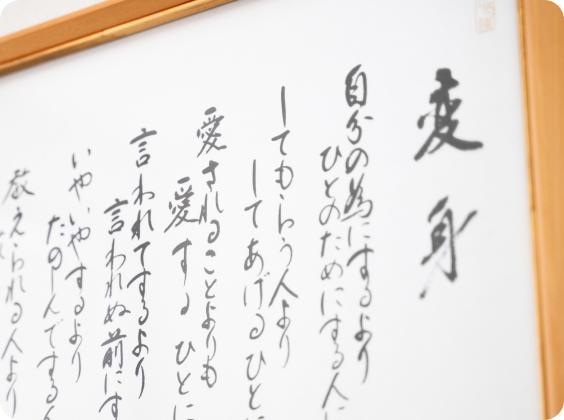 変身
自分の為にするより
ひとのためにする人に
してもらう人より
してあげるひとに
愛されることよりも
愛する ひとに
言われてするより
言われぬ前にす
いやいやするより
たのしんでする
教えられる人より